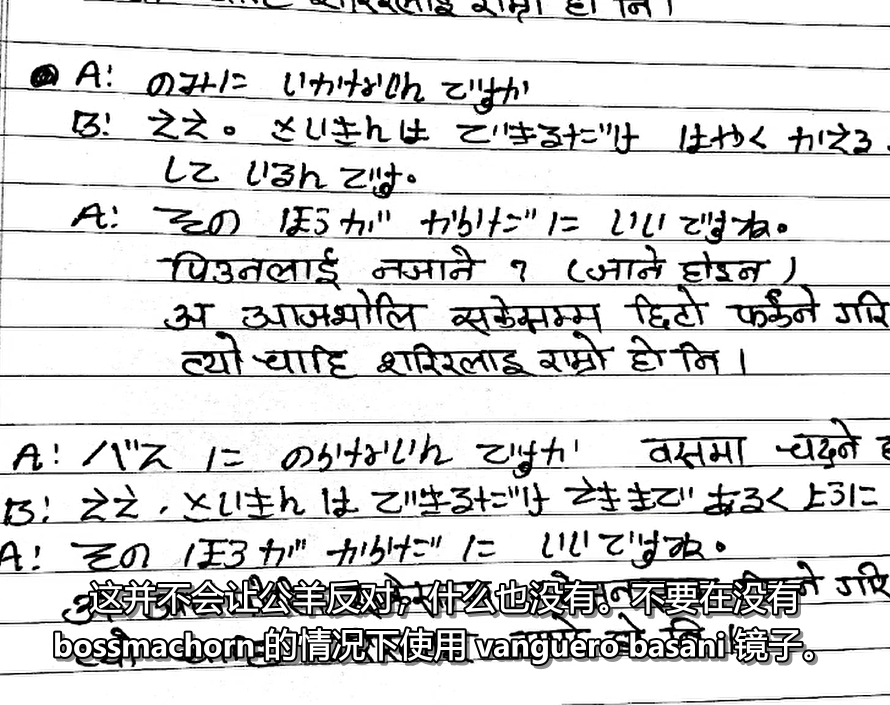 शरिरलाई राम्रो हो नि।
A: のみに いかないん ですか
B: ええ。さいきんは できるだけ はやく かえる
して いるん です。
A: その ほうが からだ に いいですね。
पिउनलाई नजाने ? (जाने होइन)
अ आजभोलि सकेसम्म छिटो फर्कने गरि
त्यो चाहि शरिरलाइ राम्रो हो नि।
A: バス に のらないん ですか वसमा चढ्ने
B: ええ、さいきん は できるだけ えきまで あるく ように
A: その ほうが からだ に いいですね。
这并不会让公羊反对，什么也没有。不要在没有
bossmachorn 的情况下使用 vanguero basani 镜子。